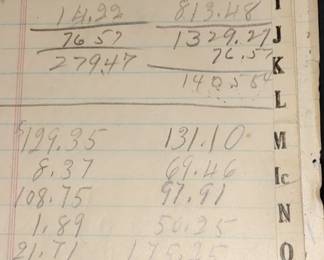 14.22 813.48
76.57 1329.27 J
279.47 76.57 K
L
$129.35 131.10 M
8.37 69.46 Mc
108.75 97.91
1.89 50.25 N
21.71 175.25 O